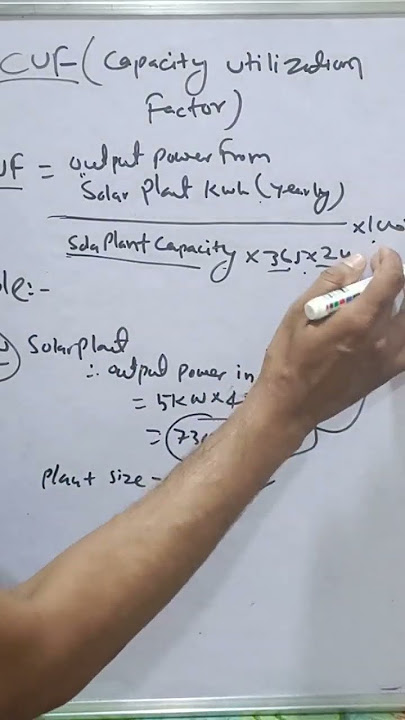 CUF (Capacity utilization
Factor)
UF = output power from
Solar Plant Kwh (yearly)
Solar Plant Capacity × 365 × 24 × 100
le:-
Solar plant
∴ output power in
= 5KW × 4
= 73
plant size -